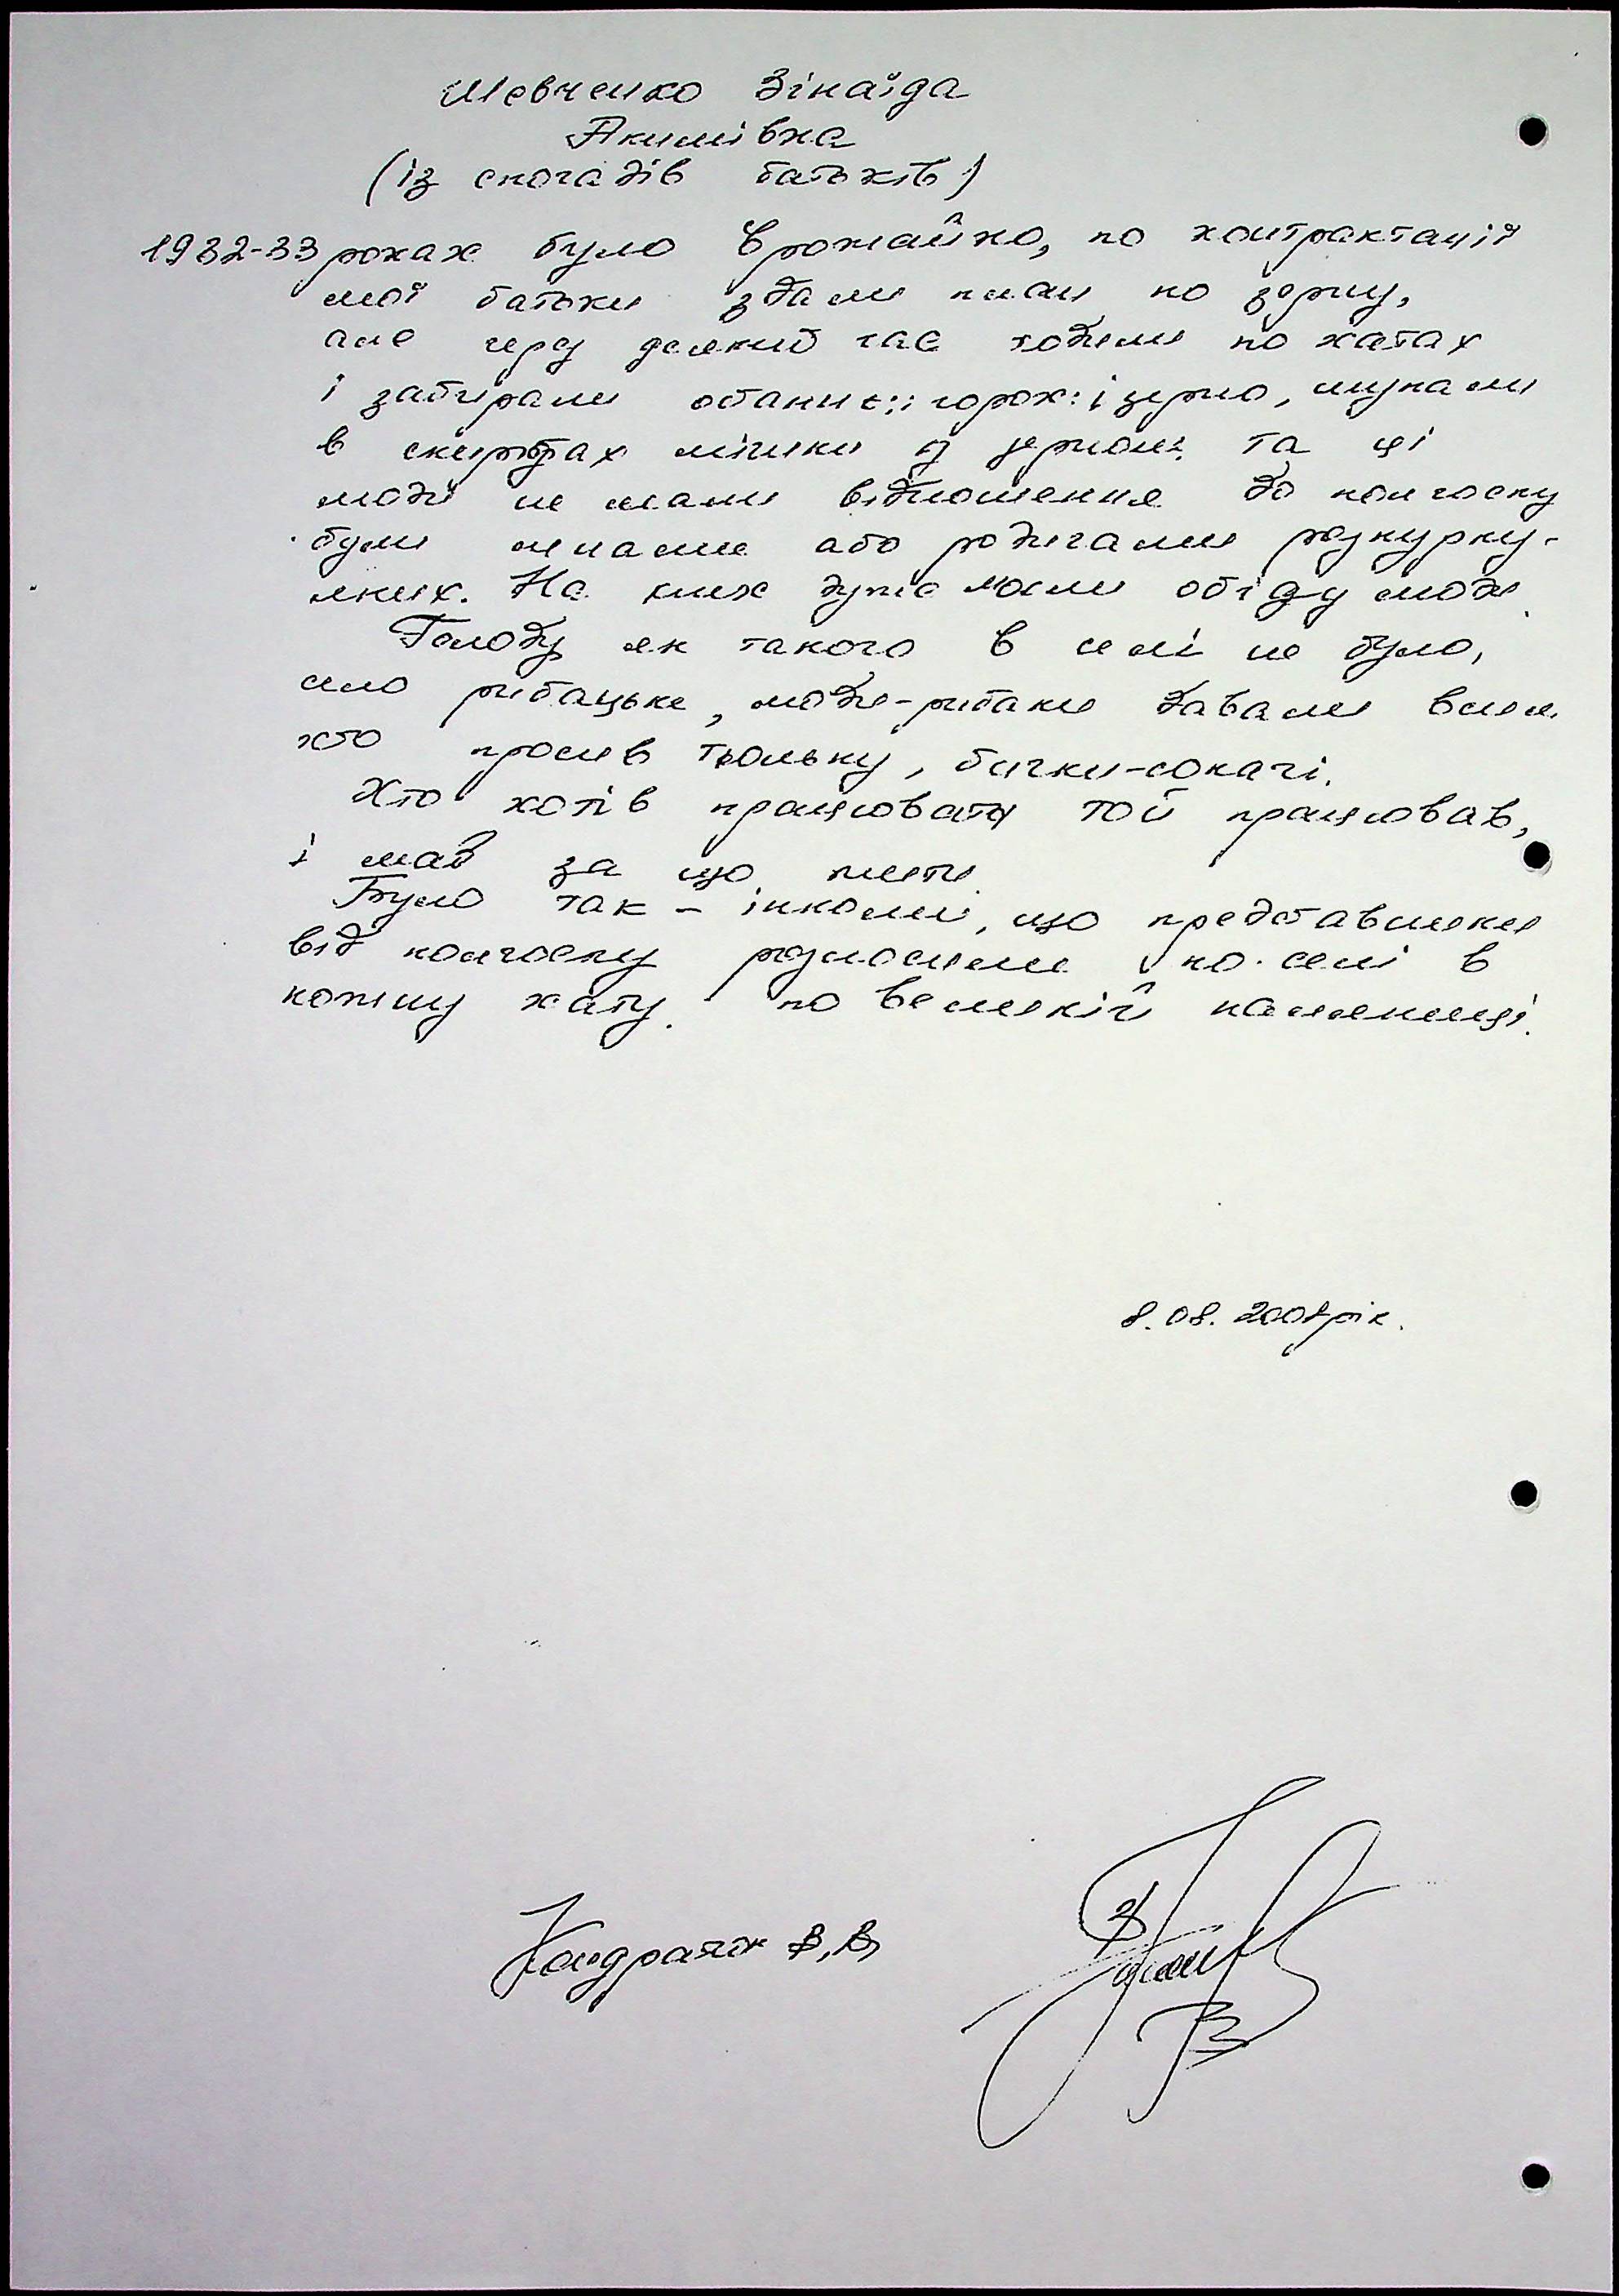 Шевченко Зінаїда
Якимівна
(із спогадів батьків)
1932-33 роках було врожайно, по контрактації
мої батьки здали план по зерну,
але через деякий час ходили по хатах
і забирали останнє: горох і зерно, шукали
в скиртах мішки із зерном, та ці
люди не мали відношення до колгоспу
були або родичами розкурку-
лених. На них дуже мали обіду люди.
Голоду як такого в селі не було,
село рибацьке, люди-рибаки давали всім
хто просив тюльку, бички-сокачі.
Хто хотів працювати той працював,
і мав за що жити.
Було так - інколи, що представники
від колгоспу розносили по селі в
кожну хату по великій паляниці.
8.08. 2008рік.
Кондратюк В.В.